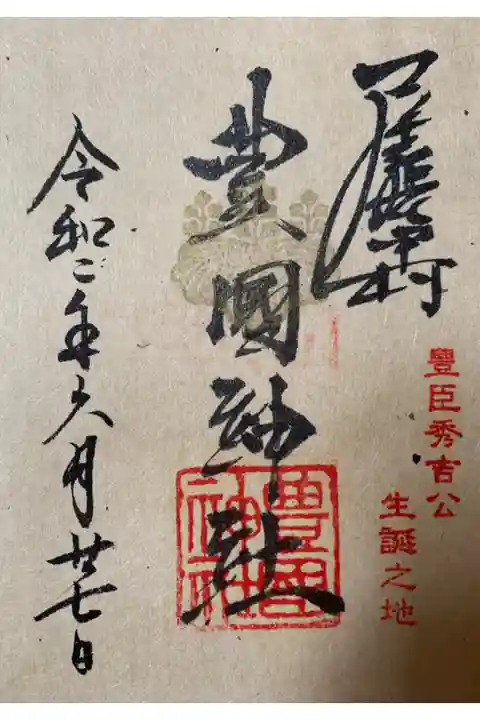 尾張中村
豊臣秀吉公
生誕之地
豊國神社
豊國
神社
令和二年六月廿七日